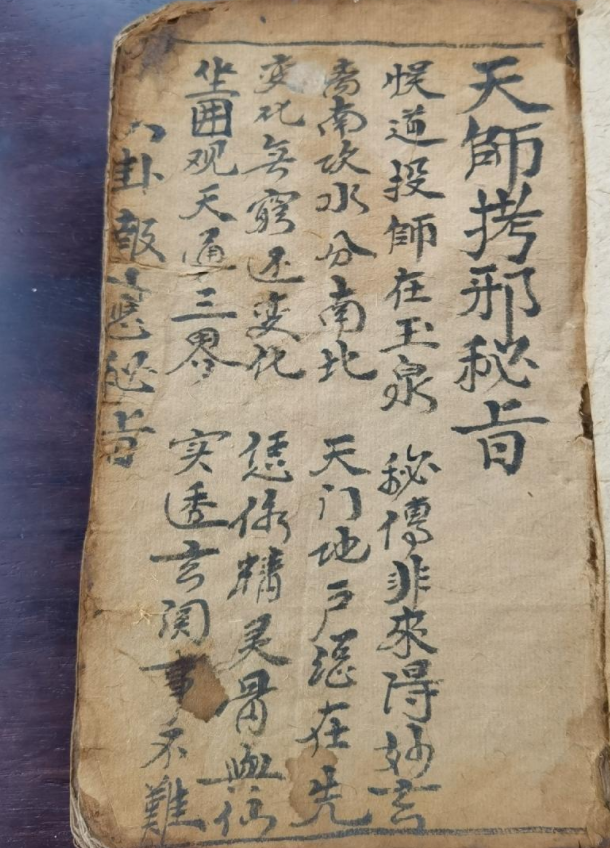 天師拷邪秘旨
悮道投師在玉泉 秘傳非來得妙玄
南坎水分南北 天门地户總在先
变化無窮还变化 你精灵骨與仙
坐囲观天通三界 实透玄関事不難
卦報應秘旨